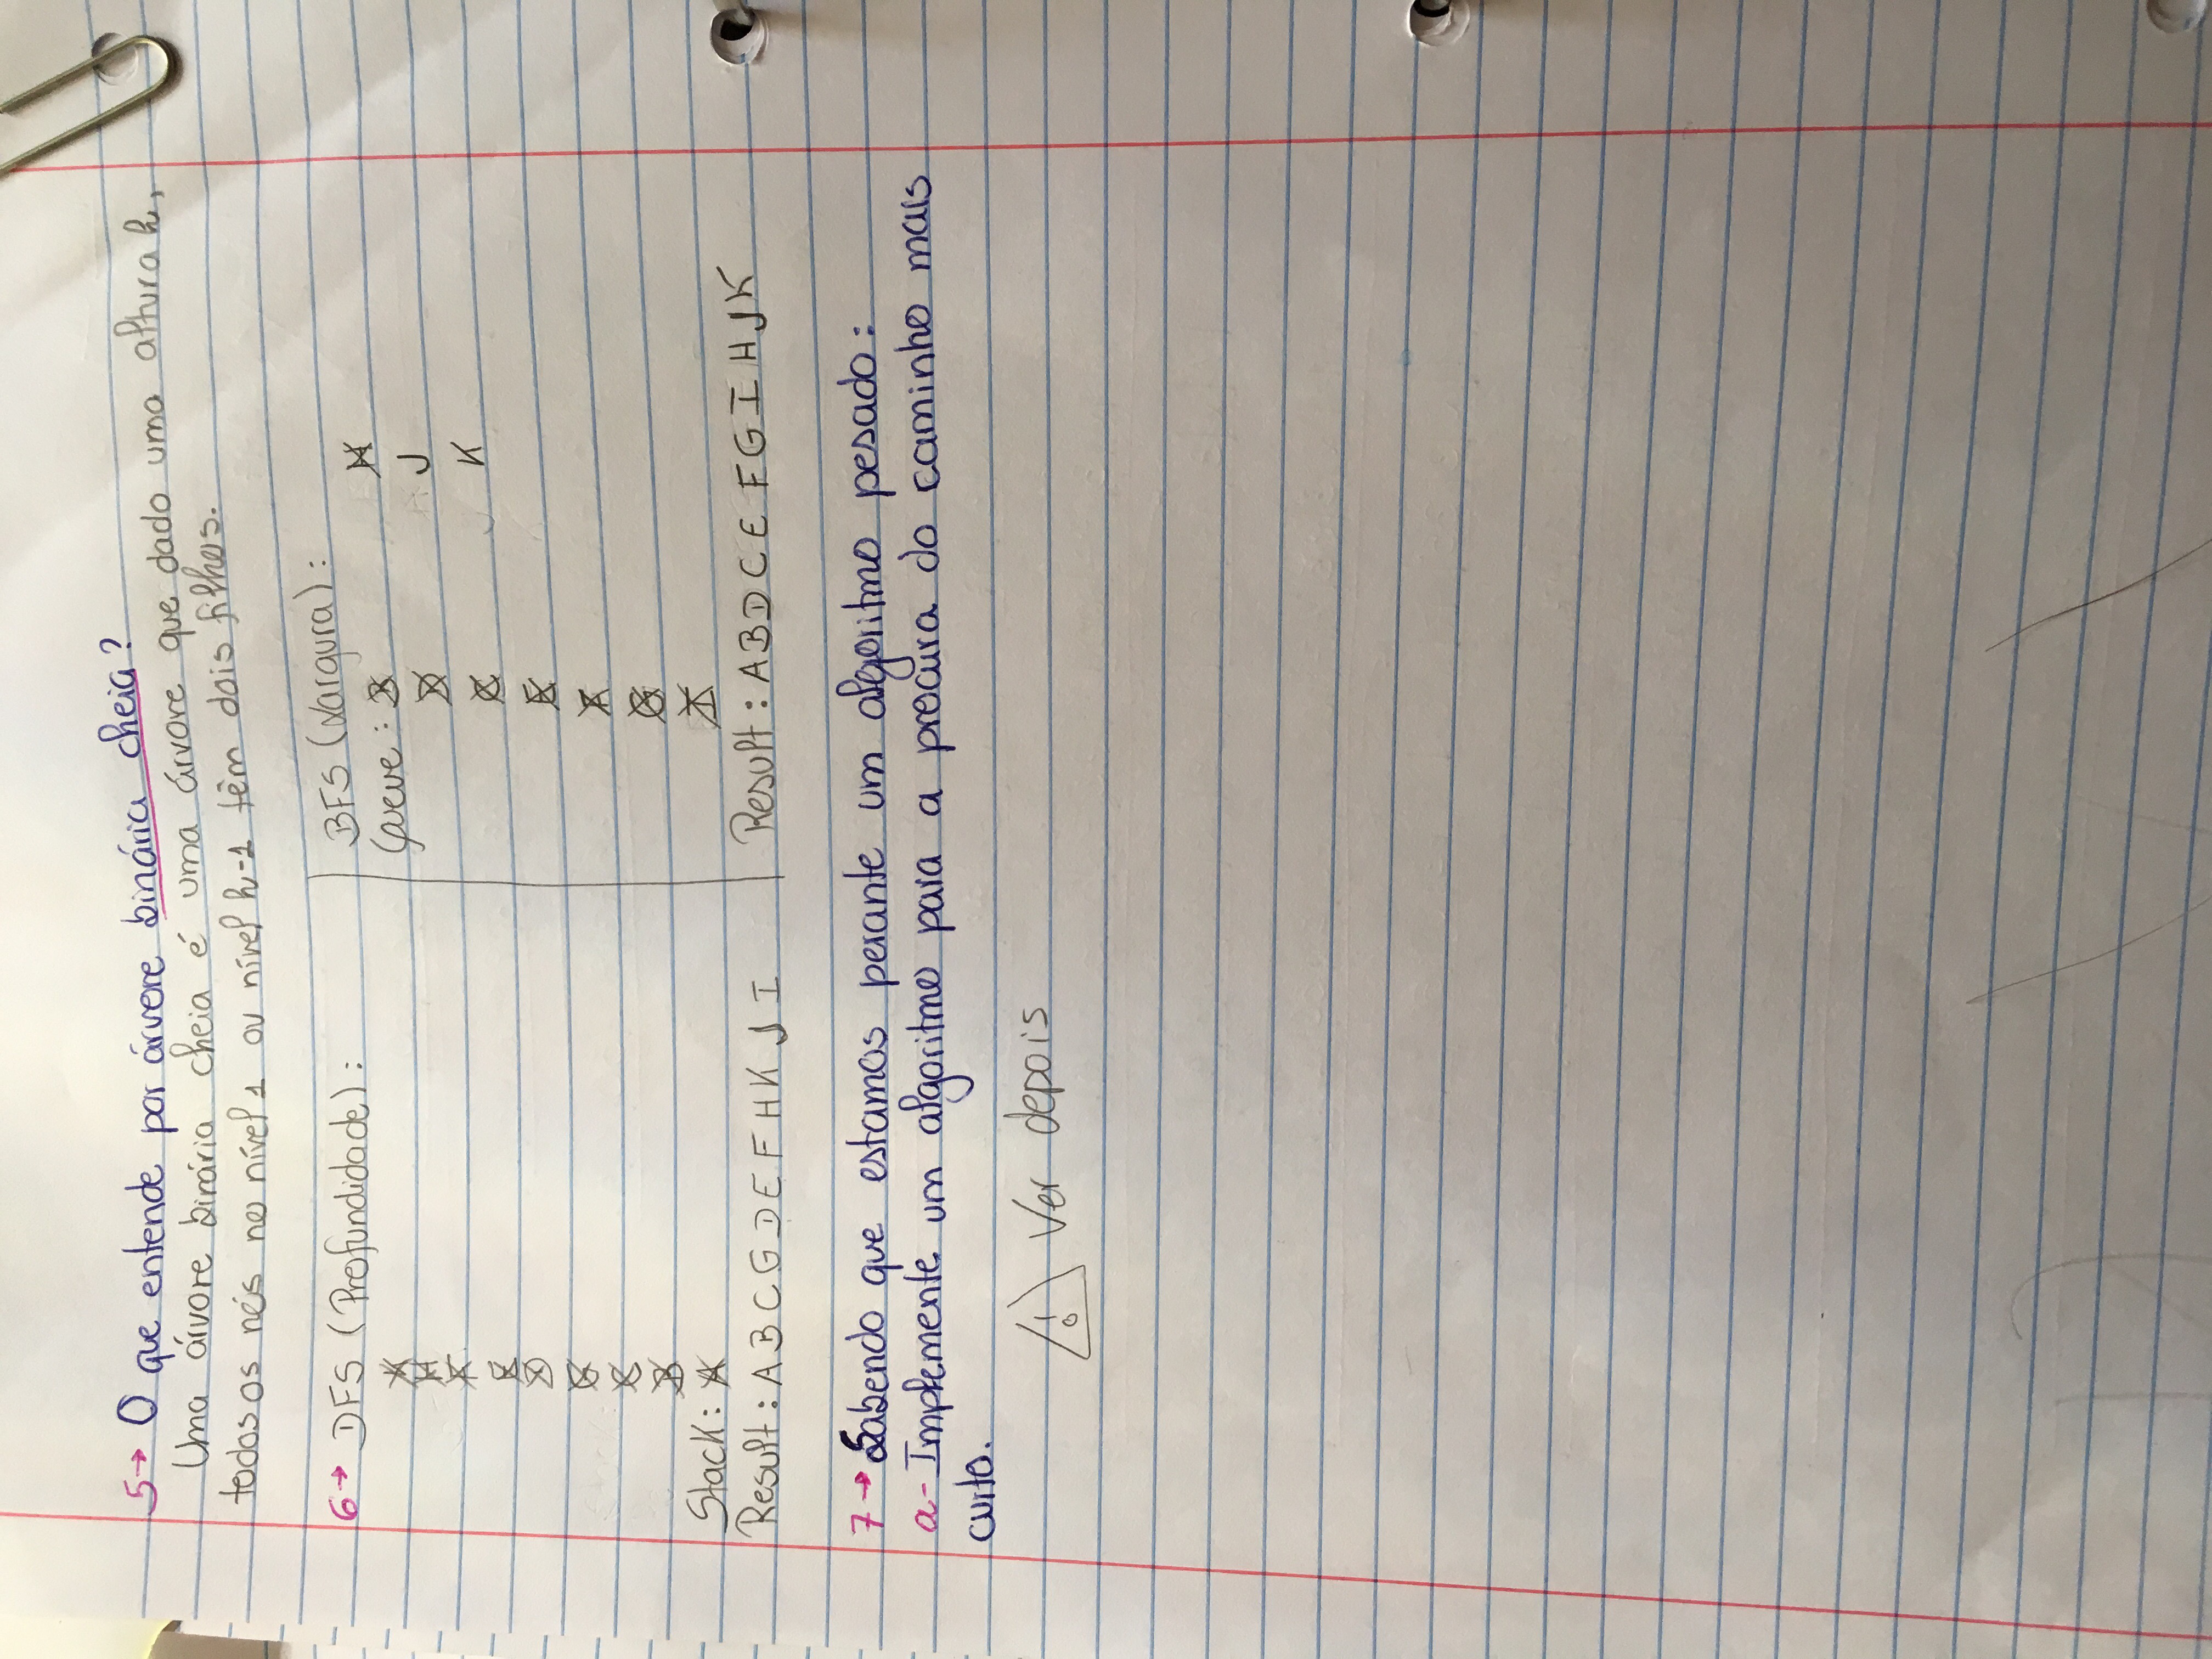 5→ O que entende por árvore binária cheia?
Uma árvore binária cheia é uma árvore que dado uma altura h,
todos os nós no nível 1 ou nível h-1 têm dois filhos.
6→ DFS (Profundidade):
H
F
E
D
G
C
B
Stack: A
Result: A B C G D E F H K J I
BFS (Largura):
Queue: B
D
C
E
F
G
I
H
J
K
Result: A B D C E F G I H J K
7→ Sabendo que estamos perante um algoritmo pesado:
a- Implemente um algoritmo para a procura do caminho mais
curto.
! Ver depois